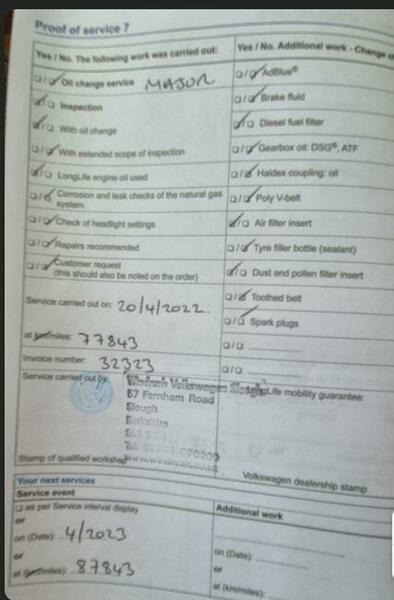 Proof of service 7
Yes / No. The following work was carried out:
Oil change service MAJOR
Inspection
With oil change
With extended scope of inspection
LongLife engine oil used
Corrosion and leak checks of the natural gas
system
Check of headlight settings
Repairs recommended
Customer request
(this should also be noted on the order)
Service carried out on: 20/4/2022.
at km/miles: 77843
Invoice number: 32323
Service carried out by:
Windrush Volkswagen Slough
57 Farnham Road
Slough
Berkshire
Stamp of qualified workshop
Yes / No. Additional work - Change
AdBlue®
Brake fluid
Diesel fuel filter
Gearbox oil: DSG®, ATF
Haldex coupling: oil
Poly V-belt
Air filter insert
Tyre filler bottle (sealant)
Dust and pollen filter insert
Toothed belt
Spark plugs
LongLife mobility guarantee:
Volkswagen dealership stamp
Your next services
Service event
as per Service interval display
or
on (Date): 4/2023
or
at (km/miles): 87843
Additional work
on (Date):
or
at (km/miles):